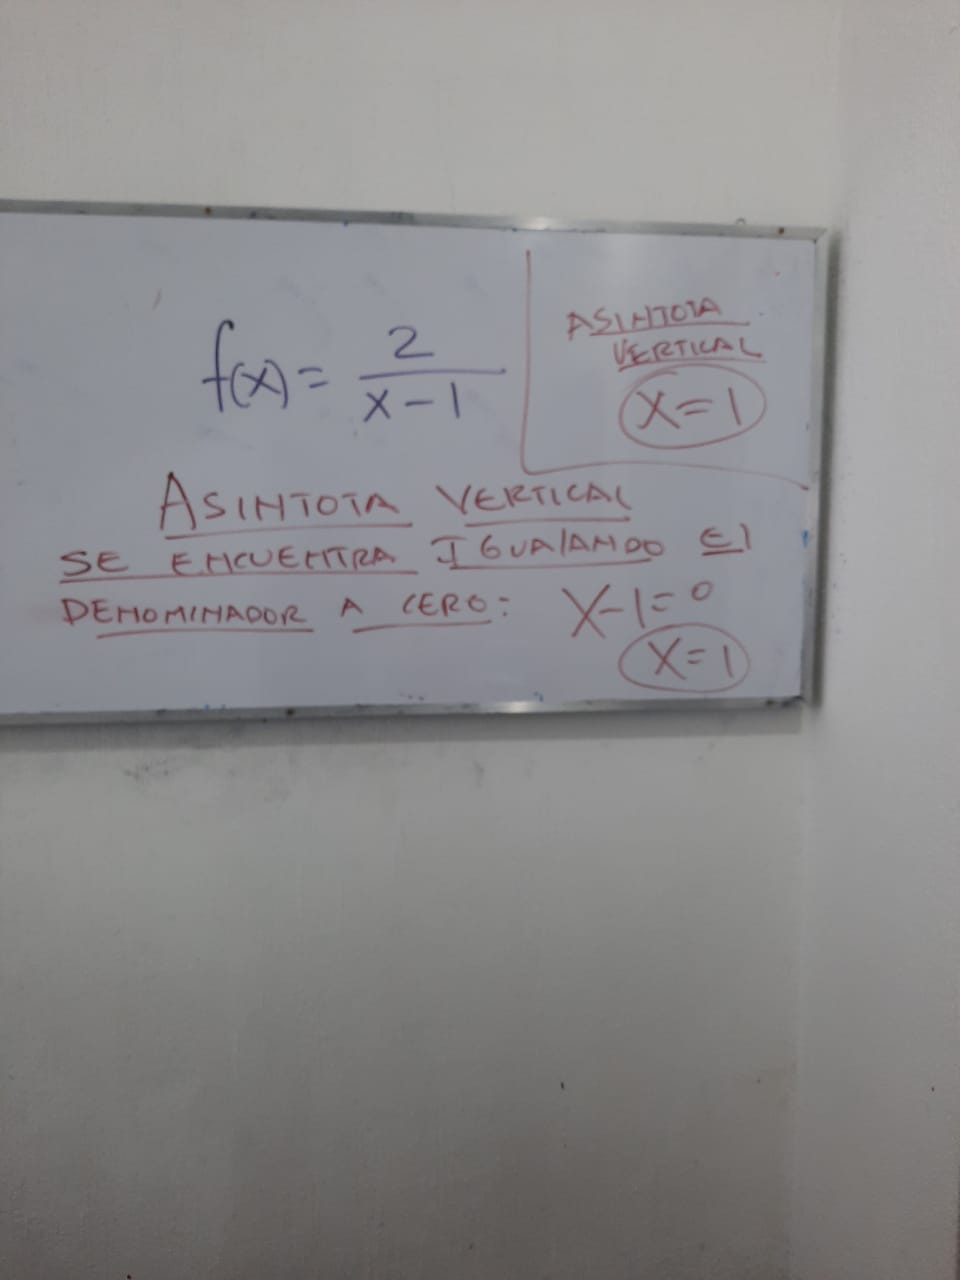 f(x) = 2 / (x - 1)
ASINTOTA
VERTICAL
x = 1
ASINTOTA VERTICAL
SE ENCUENTRA IGUALANDO El
DENOMINADOR A CERO: X-1=0
X=1